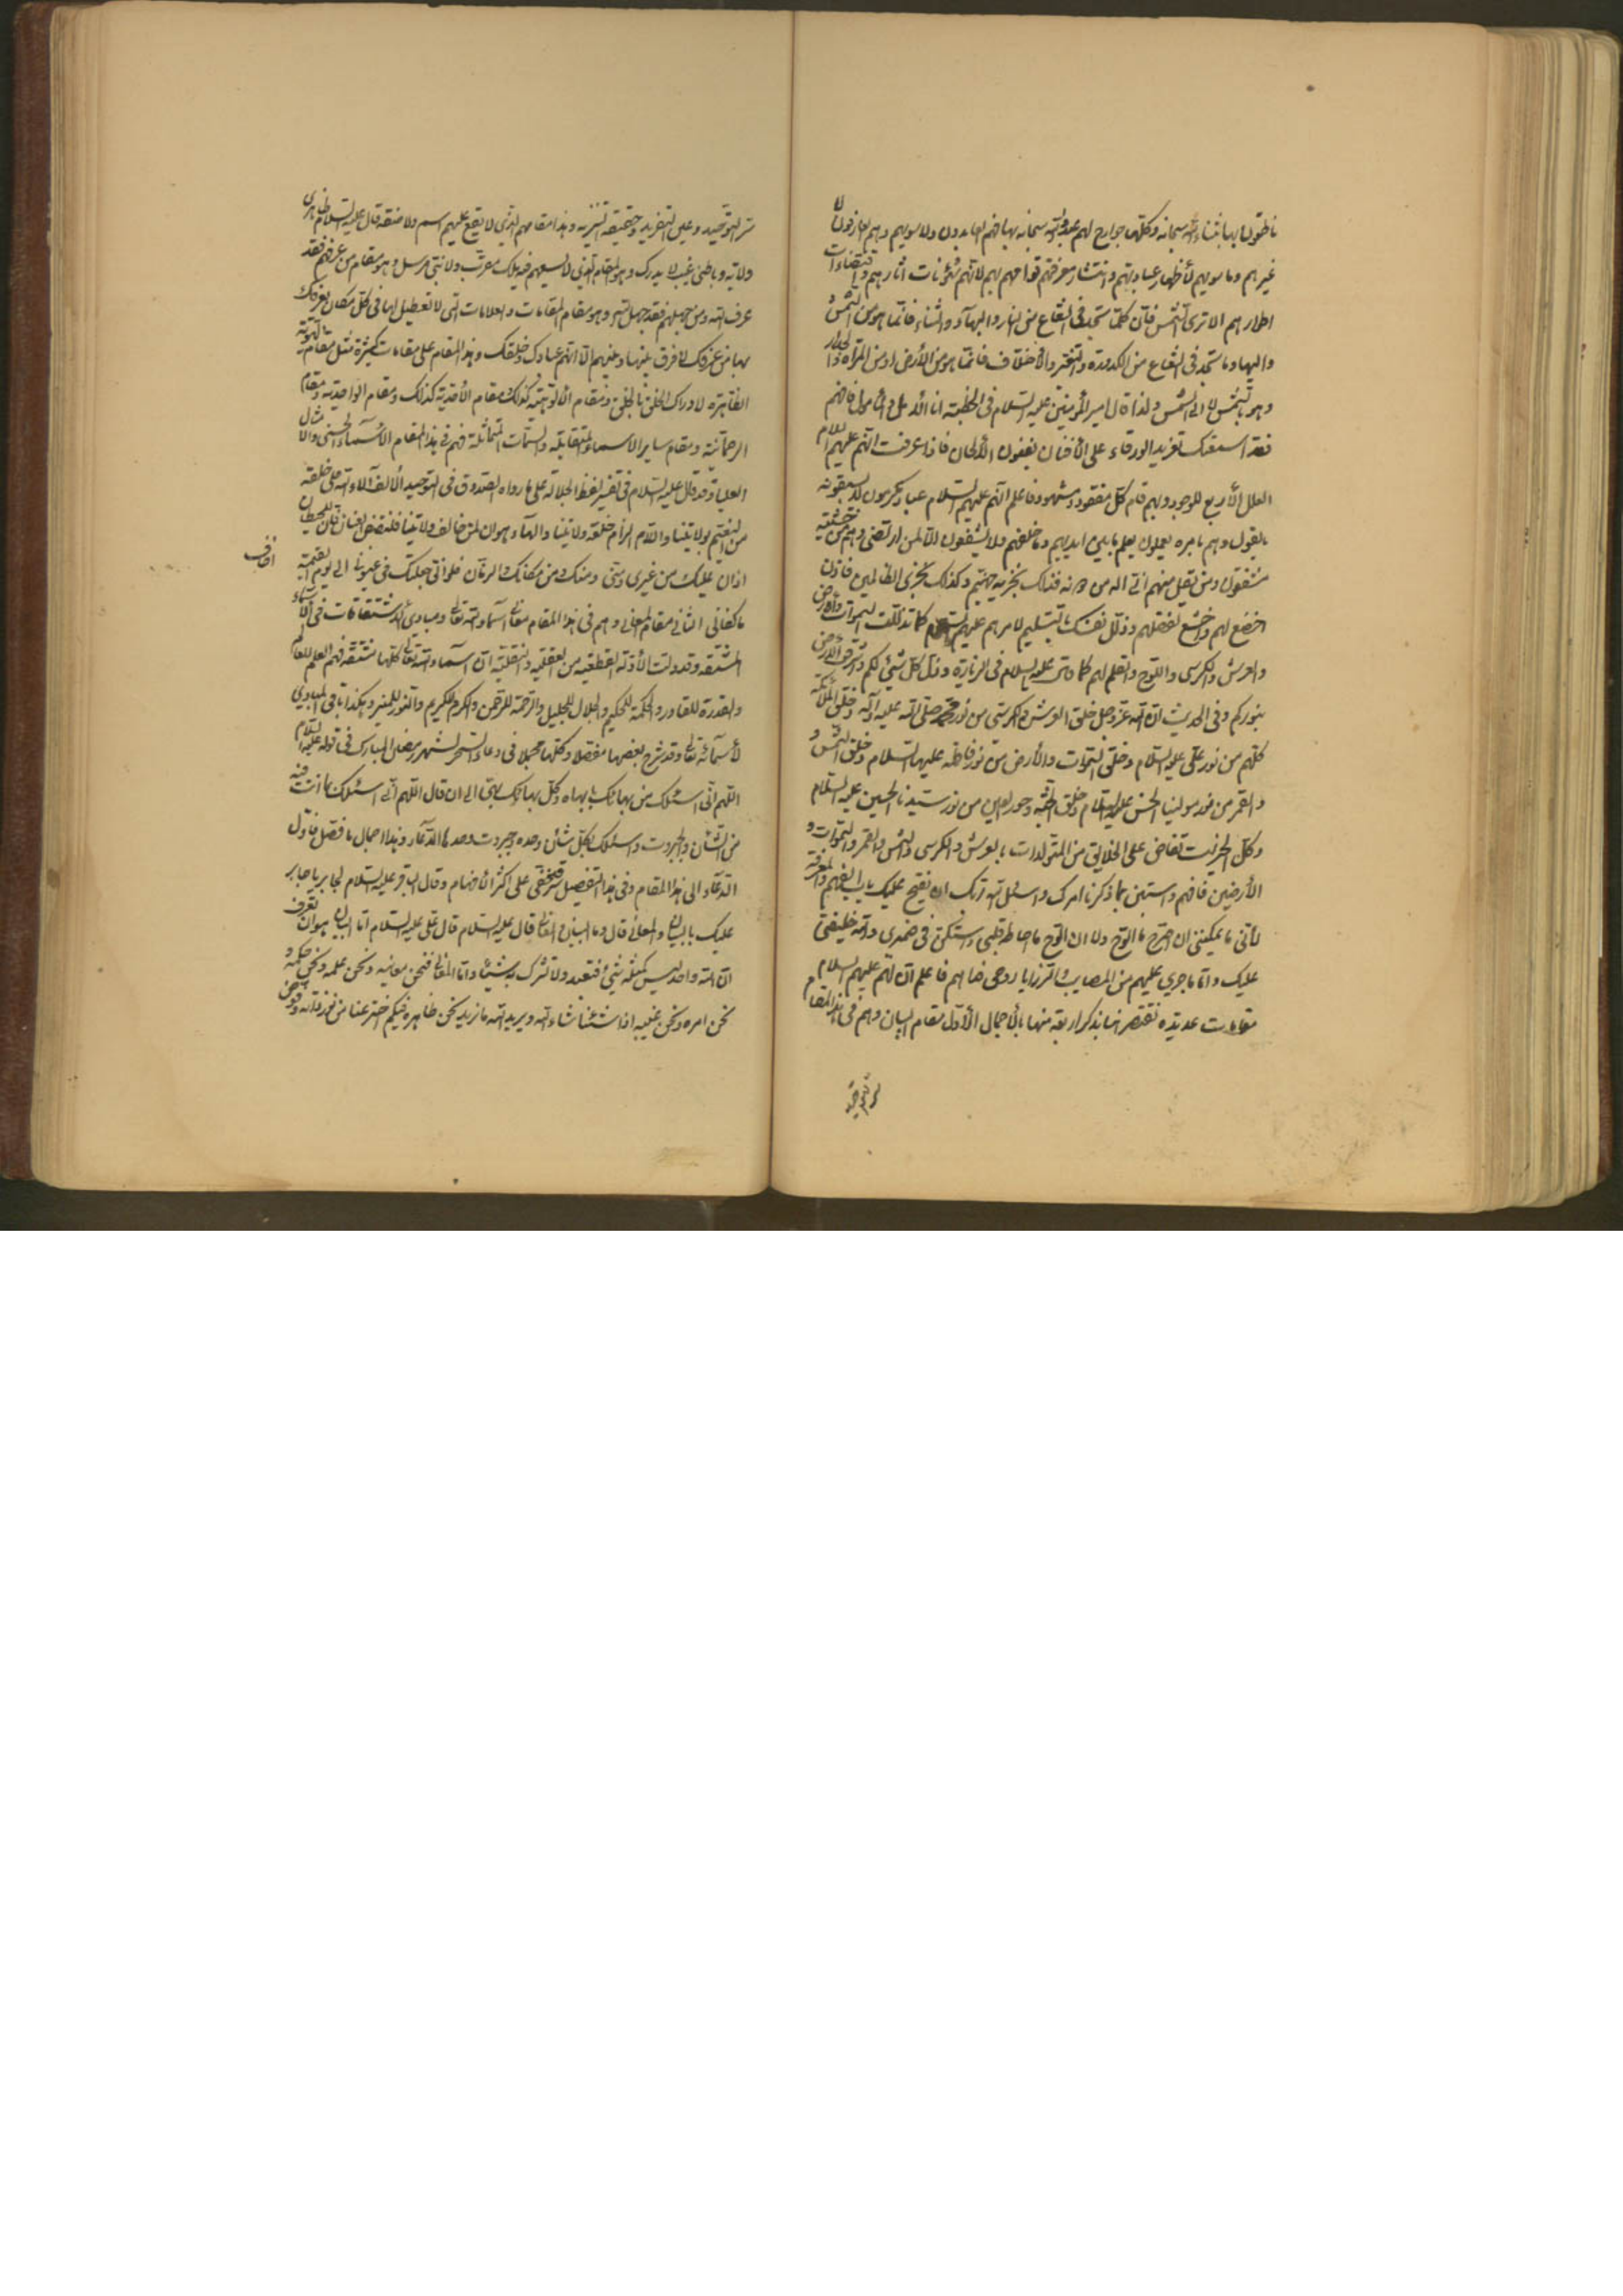 ناطقون بها بثناء الله سبحانه وكلها جوارح لهم عبدوا الله سبحانه بها فهم العابدون ولا سويهم وهم العارفون لا
غيرهم وما سويهم لأظهار عبادتهم وانتشار معرفتهم قوامهم بهم لانهم شؤنات آثارهم واقتضاءات
اطوارهم الا ترى الشمس فان كلما تجد في الشعاع من النار والبهاء والثناء فانما هو من الشمس
واليها وما تجد في الشعاع من الكدورة والتغير والأختلاف فانما هو من الأرض او من المرآة والجدار
وهو بالشمس لا الى الشمس ولذا قال امير المؤمنين عليه السلام في الخطبة انا الأمل والمأمول فافهم
فقد اسمعتك تغريد الورقاء على الأفنان بفنون الألحان فاذا عرفت انهم عليهم السلام
العلل الأربع للوجود وبهم قام كل مفقود ومشهود فاعلم انهم عليهم السلام عباد مكرمون لا يسبقونه
بالقول وهم بامره يعملون يعلم ما بين ايديهم وما خلفهم ولا يشفعون الا لمن ارتضى وهم من خشيته
مشفقون ومن يقل منهم اني اله من دونه فذلك نجزيه جهنم وكذلك نجزى الظالمين فاذن
اخضع لهم واخشع لفضلهم وذلل نفسك بالتسليم لامرهم عليهم السلام كما تذللت السموات والأرض
والعرش والكرسي واللوح والقلم لهم كما قال عليه السلام في الزيارة وذل كل شيئ لكم واشرقت الأرض
بنوركم وفى الحديث ان الله عز وجل خلق العرش والكرسي من نور محمد صلى الله عليه وآله وخلق الملائكة
كلهم من نور علي عليه السلام وخلق السموات والأرض من نور فاطمة عليها السلام وخلق الشمس و
القمر من نور مولينا الحسن عليه السلام وخلق الجنة وحور العين من نور سيدنا الحسين عليه السلام
وكل الخيرات تفاض على الخلايق من المتولدات بالعرش والكرسي والشمس والقمر والسموات و
الأرضين فافهم واستبن بما ذكرنا امرك واسئل الله ربك ان يفتح عليك باب الفهم والمعرفة
لأني ما يمكنني ان اصرح ما الوح ولا ان الوح ما احاط قلبي واستكن في ضميري والله خليفتي
عليك واما ما جرى عليهم من المصايب والرزايا روحى فداهم فاعلم ان لهم عليهم السلام
مقامات عديدة نقتصر هنا بذكر اربعة منها بالأجمال الأول مقام البيان وهم في هذا المقام
سر التوحيد
سر التوحيد وعين التفريد وحقيقة التنزيه وهذا مقامهم الذي لا يقع عليهم اسم ولا صفة قال عليه السلام ظاهري
ولاية وباطني غيب لا يدرك وهو المقام الذي لا يسعهم فيه ملك مقرب ولا نبي مرسل وهو مقام من عرفهم فقد
عرف الله ومن جهلهم فقد جهل الله وهو مقام المقامات والعلامات التي لا تعطيل لها في كل مكان يعرفك
بها من عرفك لا فرق بينها وبينهم الا انهم عبادك وخلقك وهذا المقام على مقامات كثيرة مثل مقام الهوية
الظاهرة لادراك الخلق بالخلق ومقام الألوهية كذلك ومقام الأحدية كذلك ومقام الواحدية ومقام
الرحمانية ومقام ساير الاسماء المتقابلة والسمات المتماثلة فهم في هذا المقام الأسماء الحسنى والأمثال
العليا وقد قال عليه السلام في تفسير لفظ الجلالة على ما رواه الصدوق في التوحيد الألف آلاء الله على خلقه
من النعيم بولايتنا واللام الزام خلقه ولايتنا والهاء هوان لمن خالف ولايتنا فلنقبض العنان فان للحيطان
اذان عليك من غيرى ومنى ومنك ومن مكانك والزمان فلو انى جعلتك في عيوني الى يوم القيمة
ما كفاني الثاني مقام المعاني وهم في هذا المقام معاني اسماء الله تعالى ومبادى الاشتقاقات في الأسماء
المشتقة وقد دلت الأدلة القطعية من العقلية والنقلية ان اسماء الله تعالى كلها مشتقة فهم العلم للعالم
والقدرة للقادر والحكمة للحكيم والجلال للجليل والرحمة للرحمن والكرم للكريم والنور للمنير وهكذا باقي المبادي
لأسمائه تعالى وقد شرح بعضها مفصلا وكلها مجملا في دعاء السحر لشهر رمضان المبارك في قوله عليه السلام
اللهم اني اسئلك من بهائك بابهاه وكل بهائك بهي الى ان قال اللهم اني اسئلك بما انت فيه
من الشأن والجبروت واسئلك بكل شأن وحده وجبروت وحدها الدعاء وهذا اجمال ما فصل في اول
الدعاء الى هذا المقام وفي هذا التفصيل سر خفي على اكثر الأفهام وقال الباقر عليه السلام لجابر يا جابر
عليك بالبيان والمعاني قال وما البيان والمعاني قال عليه السلام قال علي عليه السلام اما البيان هو ان تعرف
ان الله واحد ليس كمثله شيئ فتعبده ولا تشرك به شيئا واما المعاني فنحن معانيه ونحن علمه ونحن حكمه و
نحن امره ونحن عينه اذا شئنا شاء الله ويريد الله ما نريد نحن ظاهره فيكم اخترعنا من نور ذاته وفوض